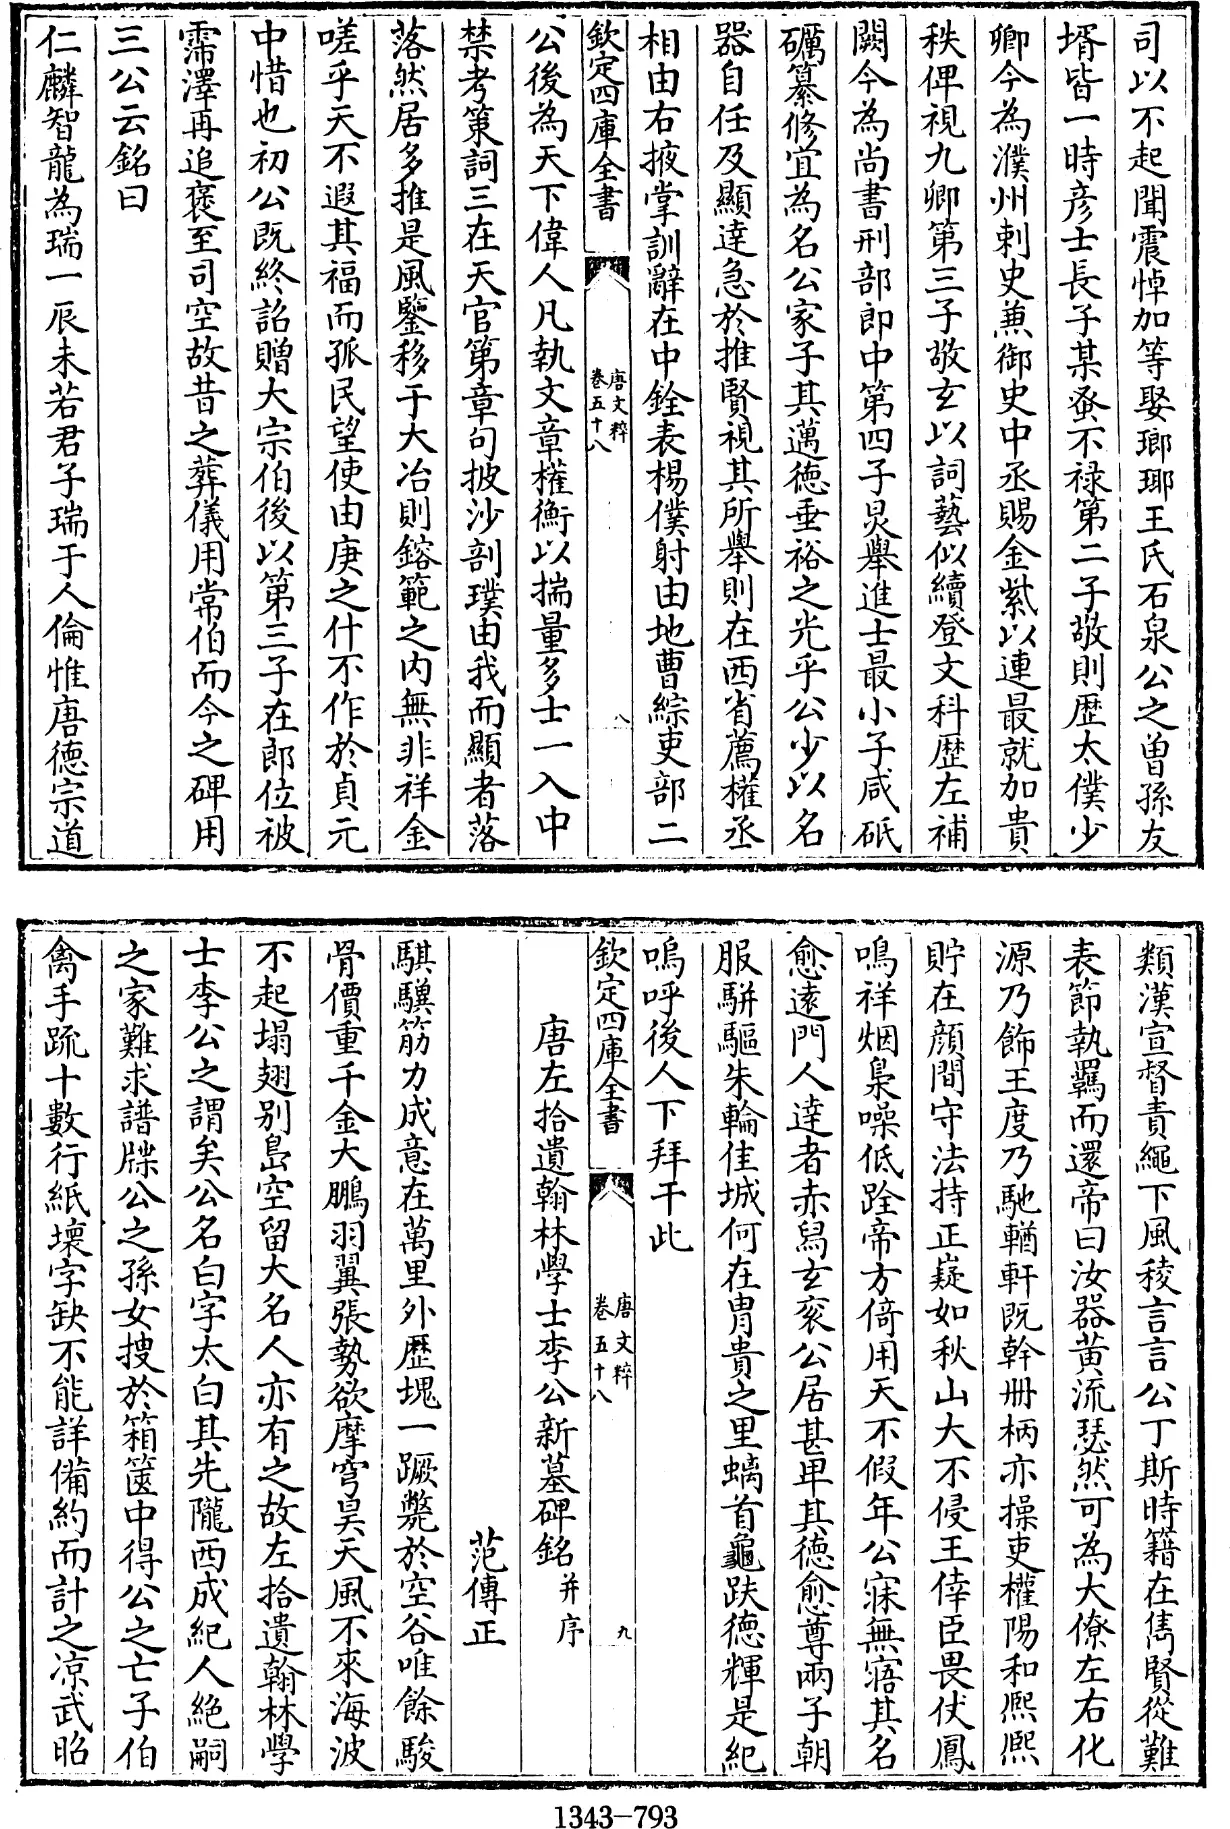 司以不起聞震悼加等娶瑯琊王氏石泉公之曾孫友
壻皆一時彦士長子某蚤不禄第二子敬則歴太僕少
卿今為濮州刺史兼御史中丞賜金紫以連最就加貴
秩俾視九卿第三子敬玄以詞藝似續登文科歴左補
闕今為尚書刑部郎中第四子炅舉進士最小子咸砥
礪纂修宜為名公家子其邁德垂裕之光乎公少以名
器自任及顯達急於推賢視其所舉則在西省薦權丞
相由右掖掌訓辭在中銓表楊僕射由地曹綜吏部二
欽定四庫全書
唐文粹
卷五十八
八
公後為天下偉人凡執文章權衡以揣量多士一入中
禁考策詞三在天官第章句披沙剖璞由我而顯者落
落然居多推是風鑒移于大冶則鎔範之内無非祥金
嗟乎天不遐其福而孤民望使由庚之什不作於貞元
中惜也初公既終詔贈大宗伯後以第三子在郎位被
霈澤再追褒至司空故昔之葬儀用常伯而今之碑用
三公云銘曰
仁麟智龍為瑞一辰未若君子瑞于人倫惟唐德宗道
類漢宣督責繩下風稜言言公丁斯時籍在儁賢從難
表節執羈而還帝曰汝器黄流瑟然可為大僚左右化
源乃飾王度乃馳輶軒既幹册柄亦操吏權陽和熙熙
貯在顔間守法持正嶷如秋山大不侵王倖臣畏伏鳳
鳴祥烟梟噪低跧帝方倚用天不假年公寐無寤其名
愈遠門人達者赤舄玄衮公居甚卑其德愈尊兩子朝
服駢驅朱輪佳城何在胄貴之里螭首龜趺德輝是紀
嗚呼後人下拜于此
欽定四庫全書
唐文粹
卷五十八
九
唐左拾遺翰林學士李公新墓碑銘并序
范傳正
騏驥筋力成意在萬里外歴塊一蹶斃於空谷唯餘駿
骨價重千金大鵬羽翼張勢欲摩穹昊天風不來海波
不起塌翅别島空留大名人亦有之故左拾遺翰林學
士李公之謂矣公名白字太白其先隴西成紀人絶嗣
之家難求譜牒公之孫女搜於箱篋中得公之亡子伯
禽手疏十數行紙壞字缺不能詳備約而計之凉武昭
1343-793